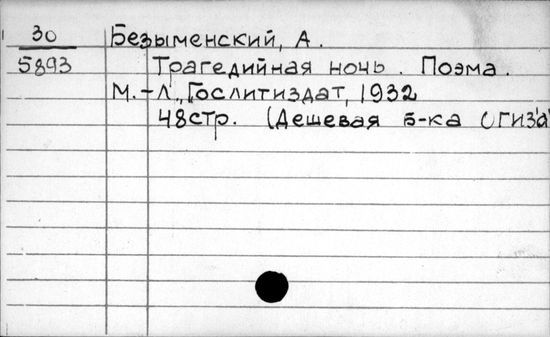 30 Безыменский, А.
5893 Трагедийная ночь. Поэма.
М.-Л., Гослитиздат, 1932
48стр. (Дешевая б-ка ОГИЗ'а